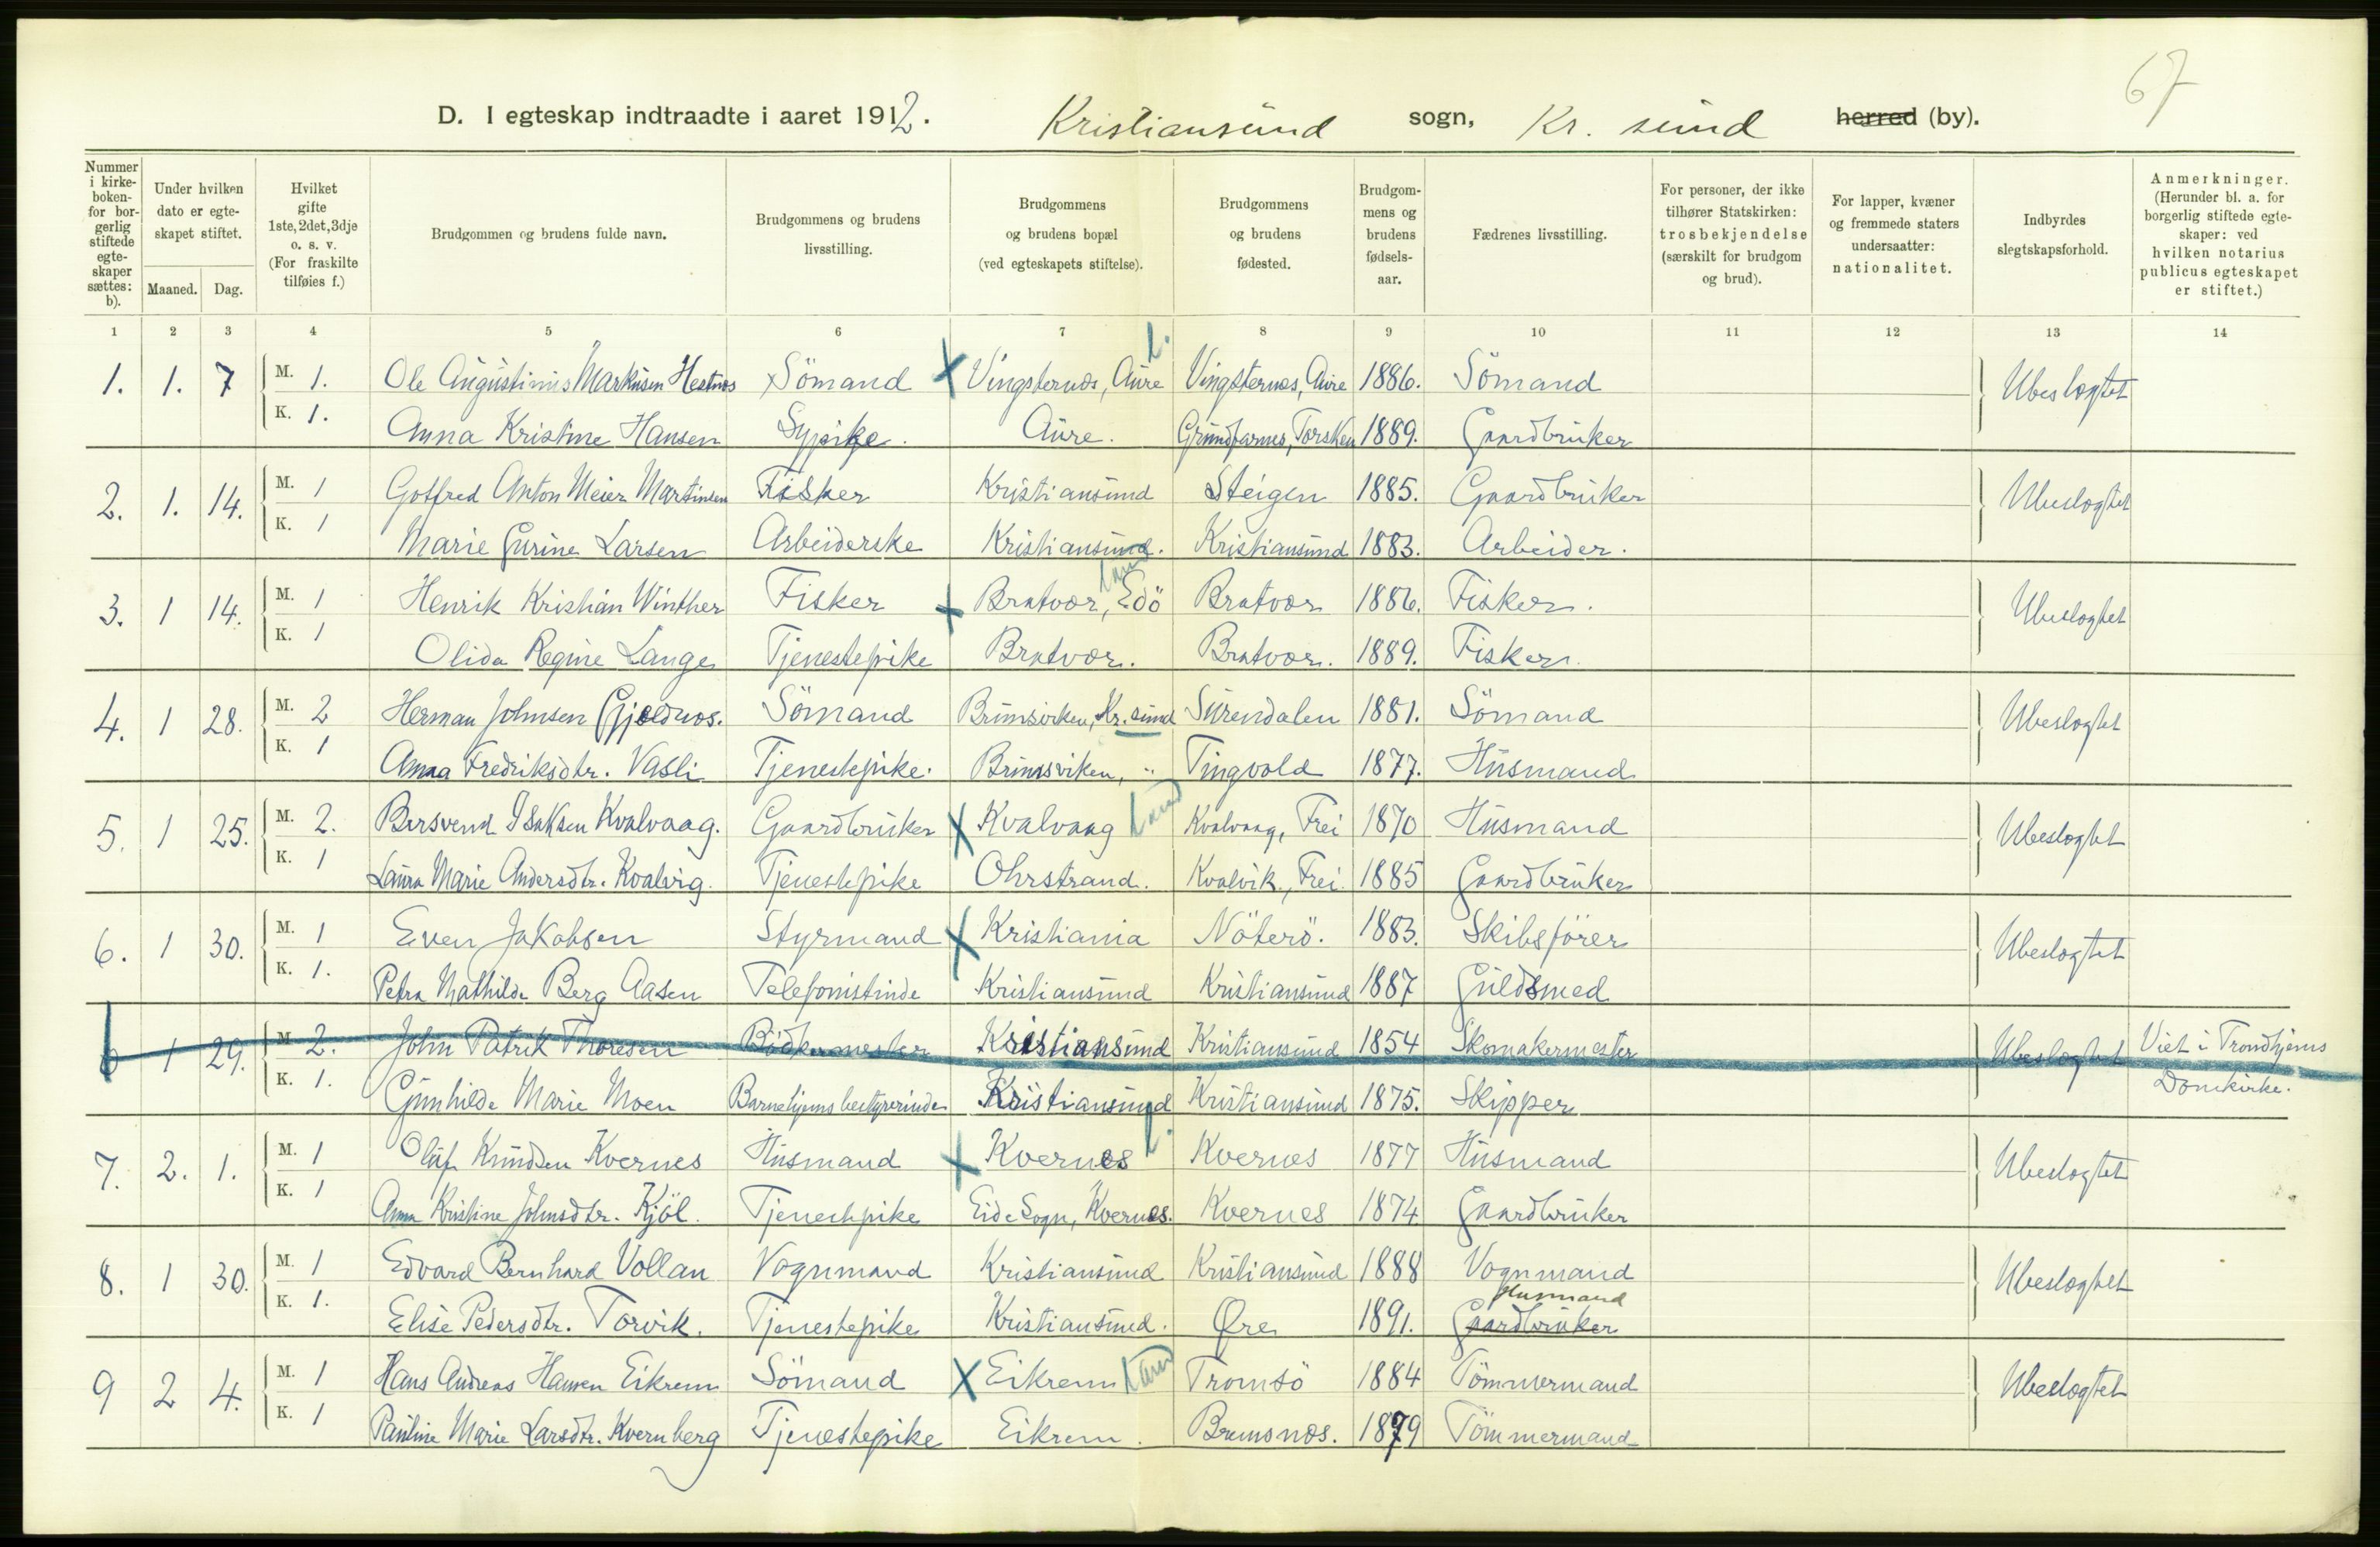 67
D. I egteskap indtraadte i aaret 1912. Kristiansund sogn, Kr. sund herred (by).
Nummer i kirke-boken- for bor-gerlig stiftede egte-skaper sættes: b).
Under hvilken dato er egte-skapet stiftet.
Maaned. Dag.
Hvilket gifte 1ste, 2det, 3dje o. s. v. (For fraskilte tilføies f.)
Brudgommen og brudens fulde navn.
Brudgommens og brudens livsstilling.
Brudgommens og brudens bopæl (ved egteskapets stiftelse).
Brudgommens og brudens fødested.
Brudgom-mens og brudens fødsels-aar.
Fædrenes livsstilling.
For personer, der ikke tilhører Statskirken: trosbekjendelse (særskilt for brudgom og brud).
For lapper, kvæner og fremmede staters undersaatter: nationalitet.
Indbyrdes slegtskapsforhold.
Anmerkninger. (Herunder bl. a. for borgerlig stiftede egte-skaper: ved hvilken notarius publicus egteskapet er stiftet.)
1 2 3 4 5 6 7 8 9 10 11 12 13 14
1. 1. 7 M. 1. Ole Augustinius Markusen Hestnæs Sömand X Vingsternæs, Aure L. Vingsternæs, Aure 1886. Sömand Ubeslægtet
K. 1. Anna Kristine Hansen Sypike. Aure. Grundfarnes, Torsken 1889. Gaardbruker
2. 1. 14. M. 1 Gotfred Anton Meier Martinsen Fisker Kristiansund Steigen 1885. Gaardbruker Ubeslægtet
K. 1 Marie Gurine Larsen Arbeiderske Kristiansund. Kristiansund 1883. Arbeider.
3. 1 14. M. 1 Henrik Kristian Winther Fisker X Bratvær, Edö Land Bratvær 1886. Fisker. Ubeslægtet
K. 1 Olida Regine Lange Tjenestepike Bratvær. Bratvær. 1889. Fisker.
4. 1 28. M. 2 Herman Johnsen Gjeldnæs. Sömand Brunsviken, Kr. sund Surendalen 1881. Sömand Ubeslægtet
K. 1 Anna Fredriksdtr. Vasli Tjenestepike. Brunsviken, " Tingvold 1877. Husmand
5. 1 25. M. 2. Bersvend Isaksen Kvalvaag. Gaardbruker X Kvalvaag Land Kvalvaag, Frei 1870 Husmand Ubeslægtet
K. 1 Laura Marie Andersdtr. Kvalvig. Tjenestepike Ohrstrand. Kvalvik, Frei. 1885 Gaardbruker
6. 1 30. M. 1 Even Jakobsen Styrmand X Kristiania Nöterö. 1883. Skibsförer Ubeslægtet
K. 1. Petra Mathilde Berg Aasen Telefonistinde Kristiansund Kristiansund 1887 Guldsmed
6 1 29. M. 2. John Patrik Thoresen Bödkermester Kristiansund Kristiansund 1854 Skomakermester Ubeslægtet Viet i Trondhjems
K. 1. Gunhilde Marie Moen Barnehjems bestyrerinde Kristiansund Kristiansund 1875. Skipper Domkirke.
7. 2. 1. M. 1 Oluf Knudsen Kvernes Husmand X Kvernes L. Kvernes 1877 Husmand Ubeslægtet
K. 1 Anna Kristine Johnsdtr. Kjöl. Tjenestepike Eide Sogn, Kvernes. Kvernes 1874 Gaardbruker
8. 1 30. M. 1 Edvard Bernhard Vollan Vognmand Kristiansund Kristiansund 1888 Vognmand Ubeslægtet
K. 1. Elise Pedersdtr. Torvik. Tjenestepike Kristiansund. Øre 1891. Gaardbruker Husmand
9 2 4. M. 1 Hans Andreas Hansen Eikrem Sömand X Eikrem Land Tromsö 1884 Tömmermand Ubeslægtet
K. 1 Pauline Marie Larsdtr. Kvernberg Tjenestepike Eikrem. Bremsnæs. 1879 Tömmermand